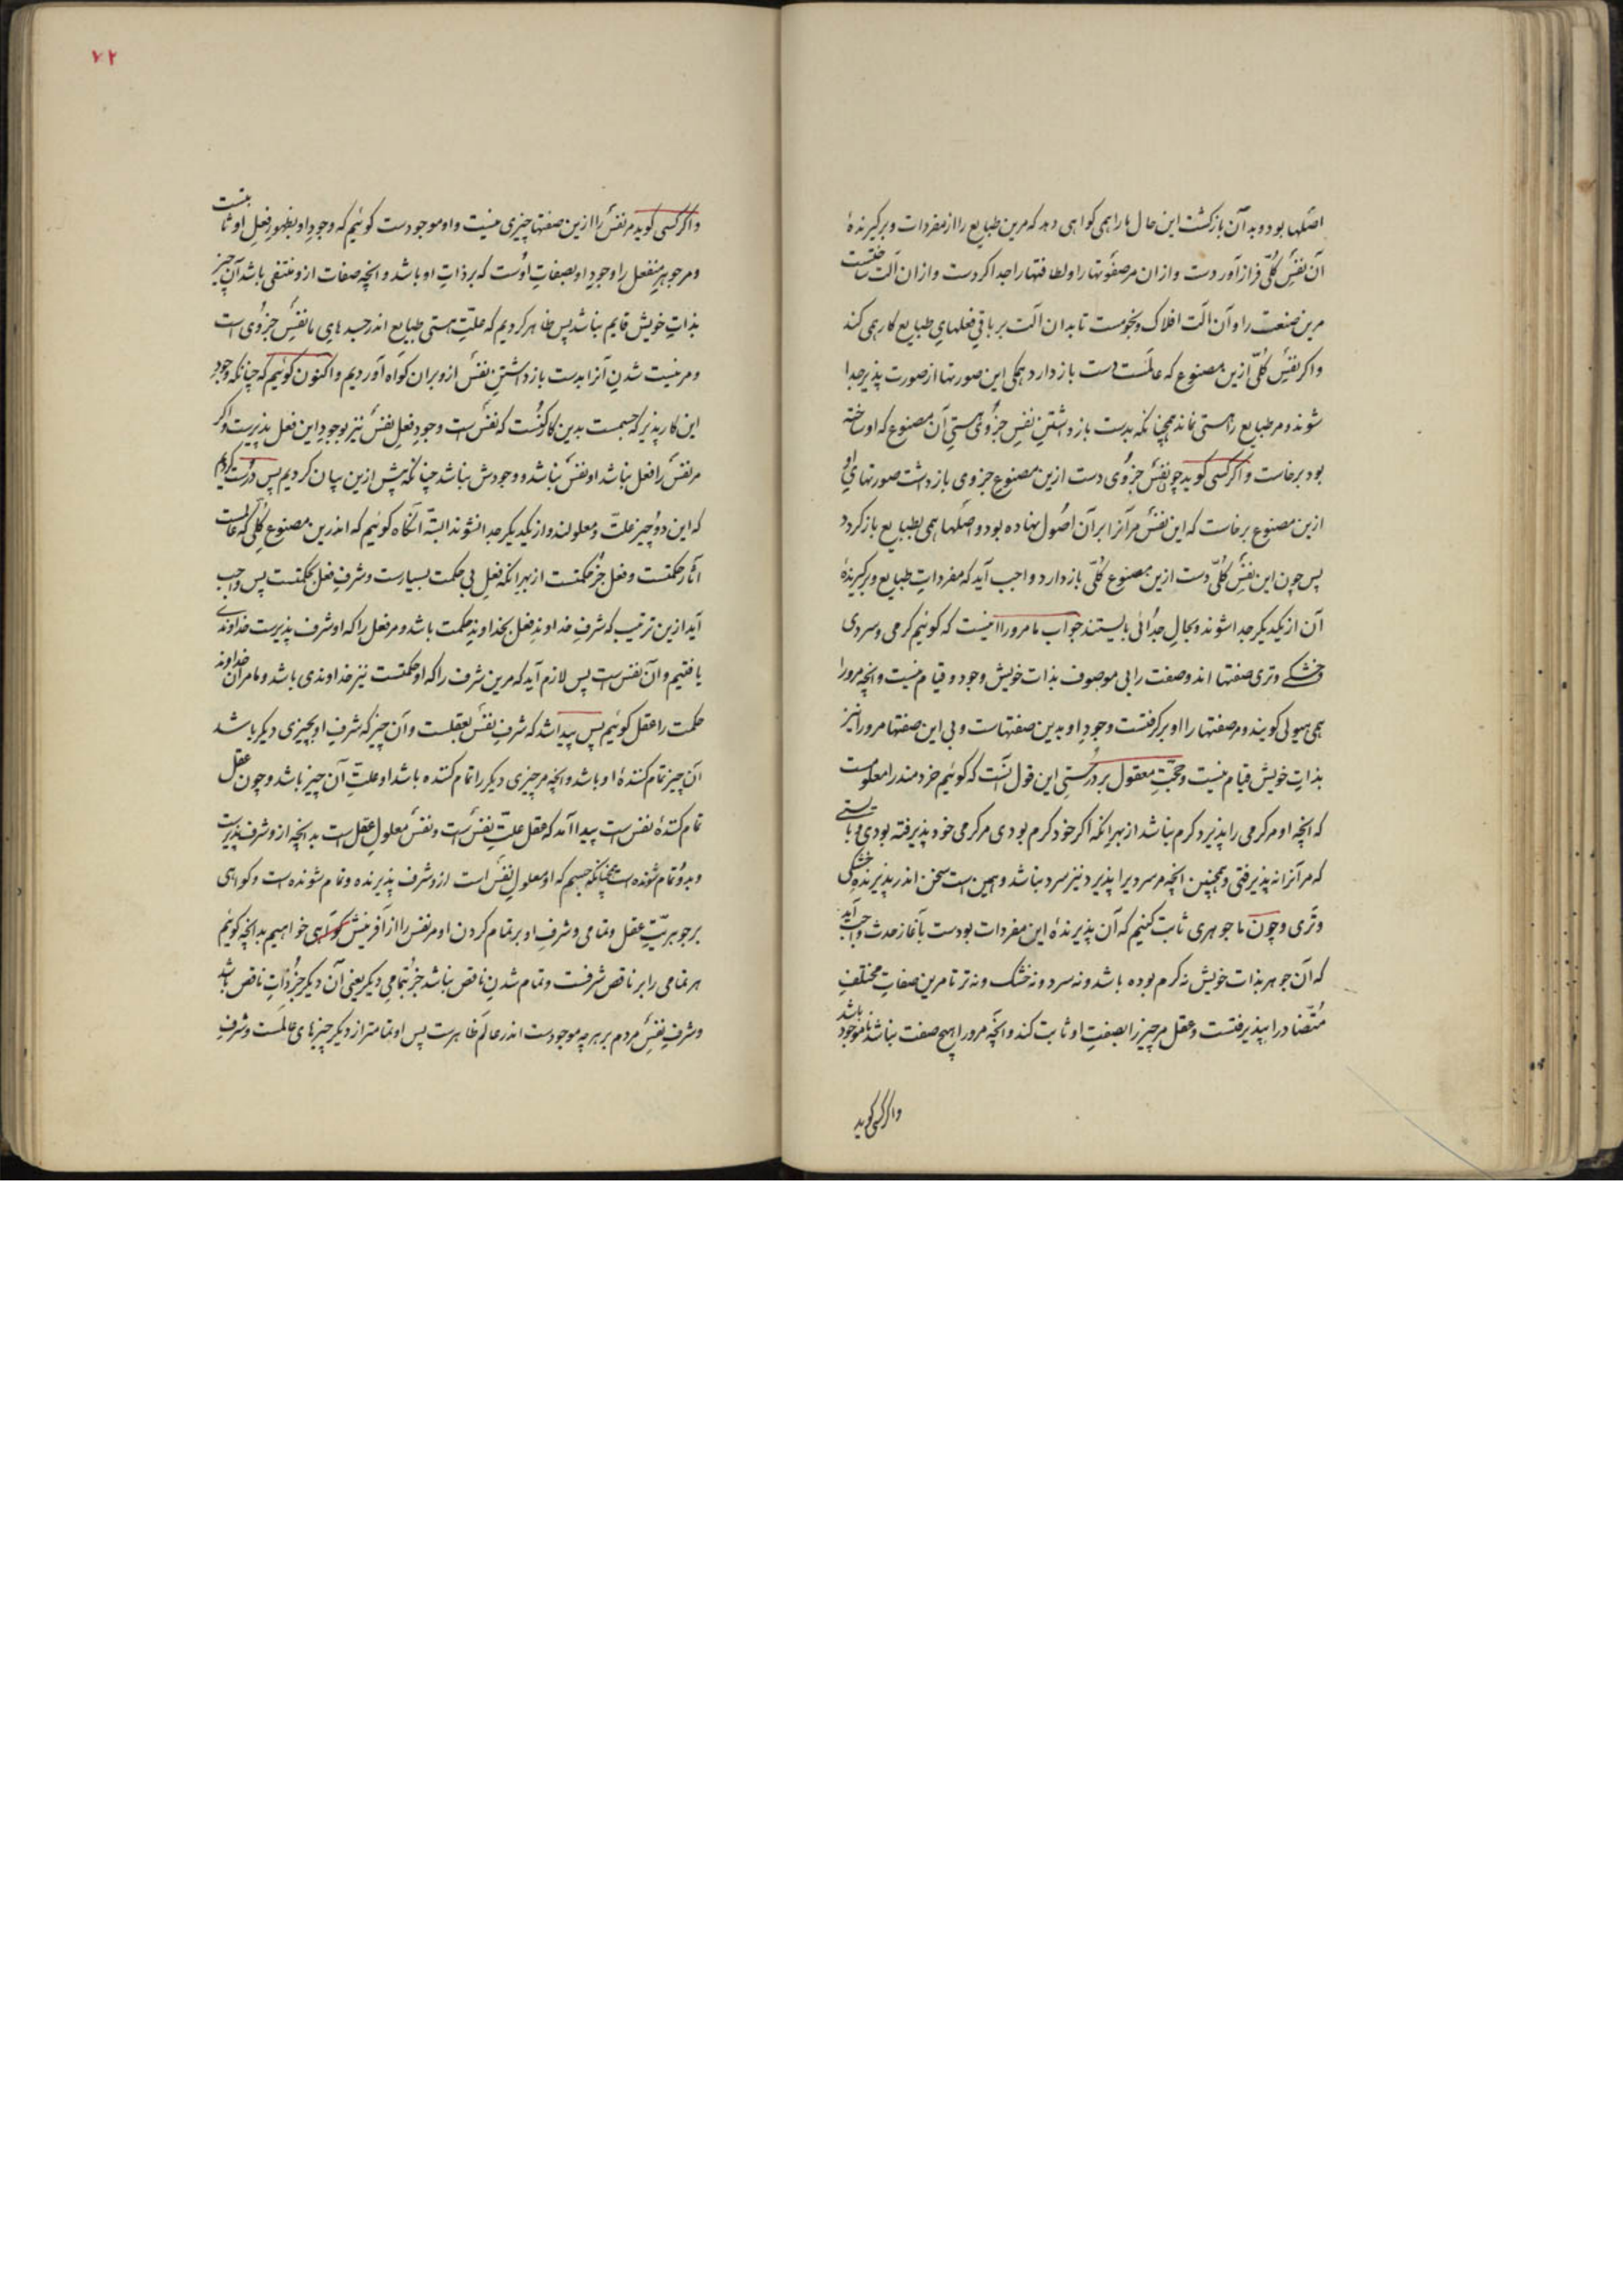 اصلها بود و بدان بازگشت این حال ما را همی گواهی دهد که مرین طبایع را از مفردات و برگیرندهٔ
آن نفس کلّی فراز آوردست و ازان مر صفوتها را و لطافتها را جدا کردست و ازان آلت ساختست
مرین صنعت را و آن آلت افلاک و نجومست تا بدان آلت بر باقی فعلهای طبایع کار همی کند
و اگر نفس کلّی ازین مصنوع که عالمست دست باز دارد همگی این صورتها از صورت پذیر جدا
شوند و مر طبایع را هستی نماند همچنانکه بدست باز داشتن نفس جزوی هستی آن مصنوع که او ساخته
بود برخاست و اگر کسی گوید چو نفس جزوی دست ازین مصنوع جزوی باز داشت صورتهای او
ازین مصنوع برخاست که این نفس مر آنرا بر آن اصول نهاده بود و اصلها همی بطبایع باز گردد
پس چون این نفس کلّی دست ازین مصنوع کلّی باز دارد واجب آید که مفردات طبایع و برگیرندهٔ
آن از یکدیگر جدا شوند و بحال جدائی بایستند جواب ما مرورا آنیست که گوئیم گرمی و سردی
و خشکی و تری صفتها اند و صفت را بی موصوف بذات خویش وجود و قیام نیست و انچه مرورا
همی هیولی گویند و مر صفتها را او برگرفتست وجود او بدین صفتهاست و بی این صفتها مرورا نیز
بذات خویش قیام نیست و حجّت معقول بر درستی این قول آنست که گوئیم خردمند را معلومست
که انچه او مر گرمی را پذیرد گرم نباشد از بهر انکه اگر خود گرم بودی مر گرمی خود پذیرفته بودی و بایستی
که مر آنرا نه پذیرفتی و همچنین انچه مر سردی را پذیرد نیز سرد نباشد و همین است سخن اندر پذیرندهٔ خشکی
و تری و چون ما جوهری ثابت کنیم که آن پذیرندهٔ این مفردات بودست بآغاز حدث واجب آید
که آن جوهر بذات خویش نه گرم بوده باشد و نه سرد و نه خشک و نه تر تا مرین صفات مختلف
متضاد را بپذیرفتست و عقل مر چیز را بصفت او ثابت کند و انچه مرورا هیچ صفت نباشد نا موجود باشد
و اگر کسی گوید
۷۲
و اگر کسی گوید مر نفس را ازین صفتها چیزی نیست و او موجودست گوئیم که وجود او بظهور فعل او ثابتست
و مر جوهر منفعل را وجود او بصفات اوست که بر ذات او باشد و انچه صفات ازو منتفی باشد آن چیز
بذات خویش قایم نباشد پس ظاهر کردیم که علّت هستی طبایع اندر جسدهای ما نفس جزوی است
و مر نیست شدن آنرا بدست باز داشتن نفس ازو بران گواه آوردیم و اکنون گوئیم که چنانکه وجود
این کار پذیر که جسمست بدین کارکنست که نفس است وجود فعل نفس نیز بوجود این فعل پذیرست و اگر
مر نفس را فعل نباشد او نفس نباشد و وجودش نباشد چنانکه پیش ازین بیان کردیم پس درست کردیم
که این دو چیز علّت و معلولند و از یکدیگر جدا نشوند البتّه آنگاه گوئیم که اندرین مصنوع کلّی که عالمست
آثار حکمتست و فعل جز حکمتست از بهر انکه فعل بی حکمت بسیارست و شرف فعل بحکمتست پس واجب
آید ازین ترتیب که شرف خداوند فعل بخداوند حکمت باشد و مر فعل را که او شرف پذیرست خداوندی
یافتیم و آن نفس است پس لازم آید که مرین شرف را که او حکمتست نیز خداوندی باشد و ما مر آن خداوند
حکمت را عقل گوئیم پس پیدا شد که شرف نفس بعقلست و آن چیز که شرف او بچیزی دیگر باشد
آن چیز تمام کنندهٔ او باشد و انچه مر چیزی دیگر را تمام کننده باشد او علّت آن چیز باشد و چون عقل
تمام کنندهٔ نفس است پیدا آمد که عقل علّت نفس است و نفس معلول عقل است بدانچه ازو شرف پذیرست
و بدو تمام شونده است همچنانکه جسم که او معلول نفس است ازو شرف پذیرنده و تمام شونده است و گواهی
بر جوهریّت عقل و تمامی و شرف او بر تمام کردن او مر نفس را از آفرینش گواهی خواهیم بدانچه گوئیم
هر تمامی را بر ناقص شرفست و تمام شدن ناقص نباشد جز بتمامی دیگر یعنی آن دیگر جز ذات ناقص باشد
و شرف نفس مردم بر هر چه موجودست اندر عالم ظاهرست پس او تمامتر از دیگر چیزهای عالمست و شرف